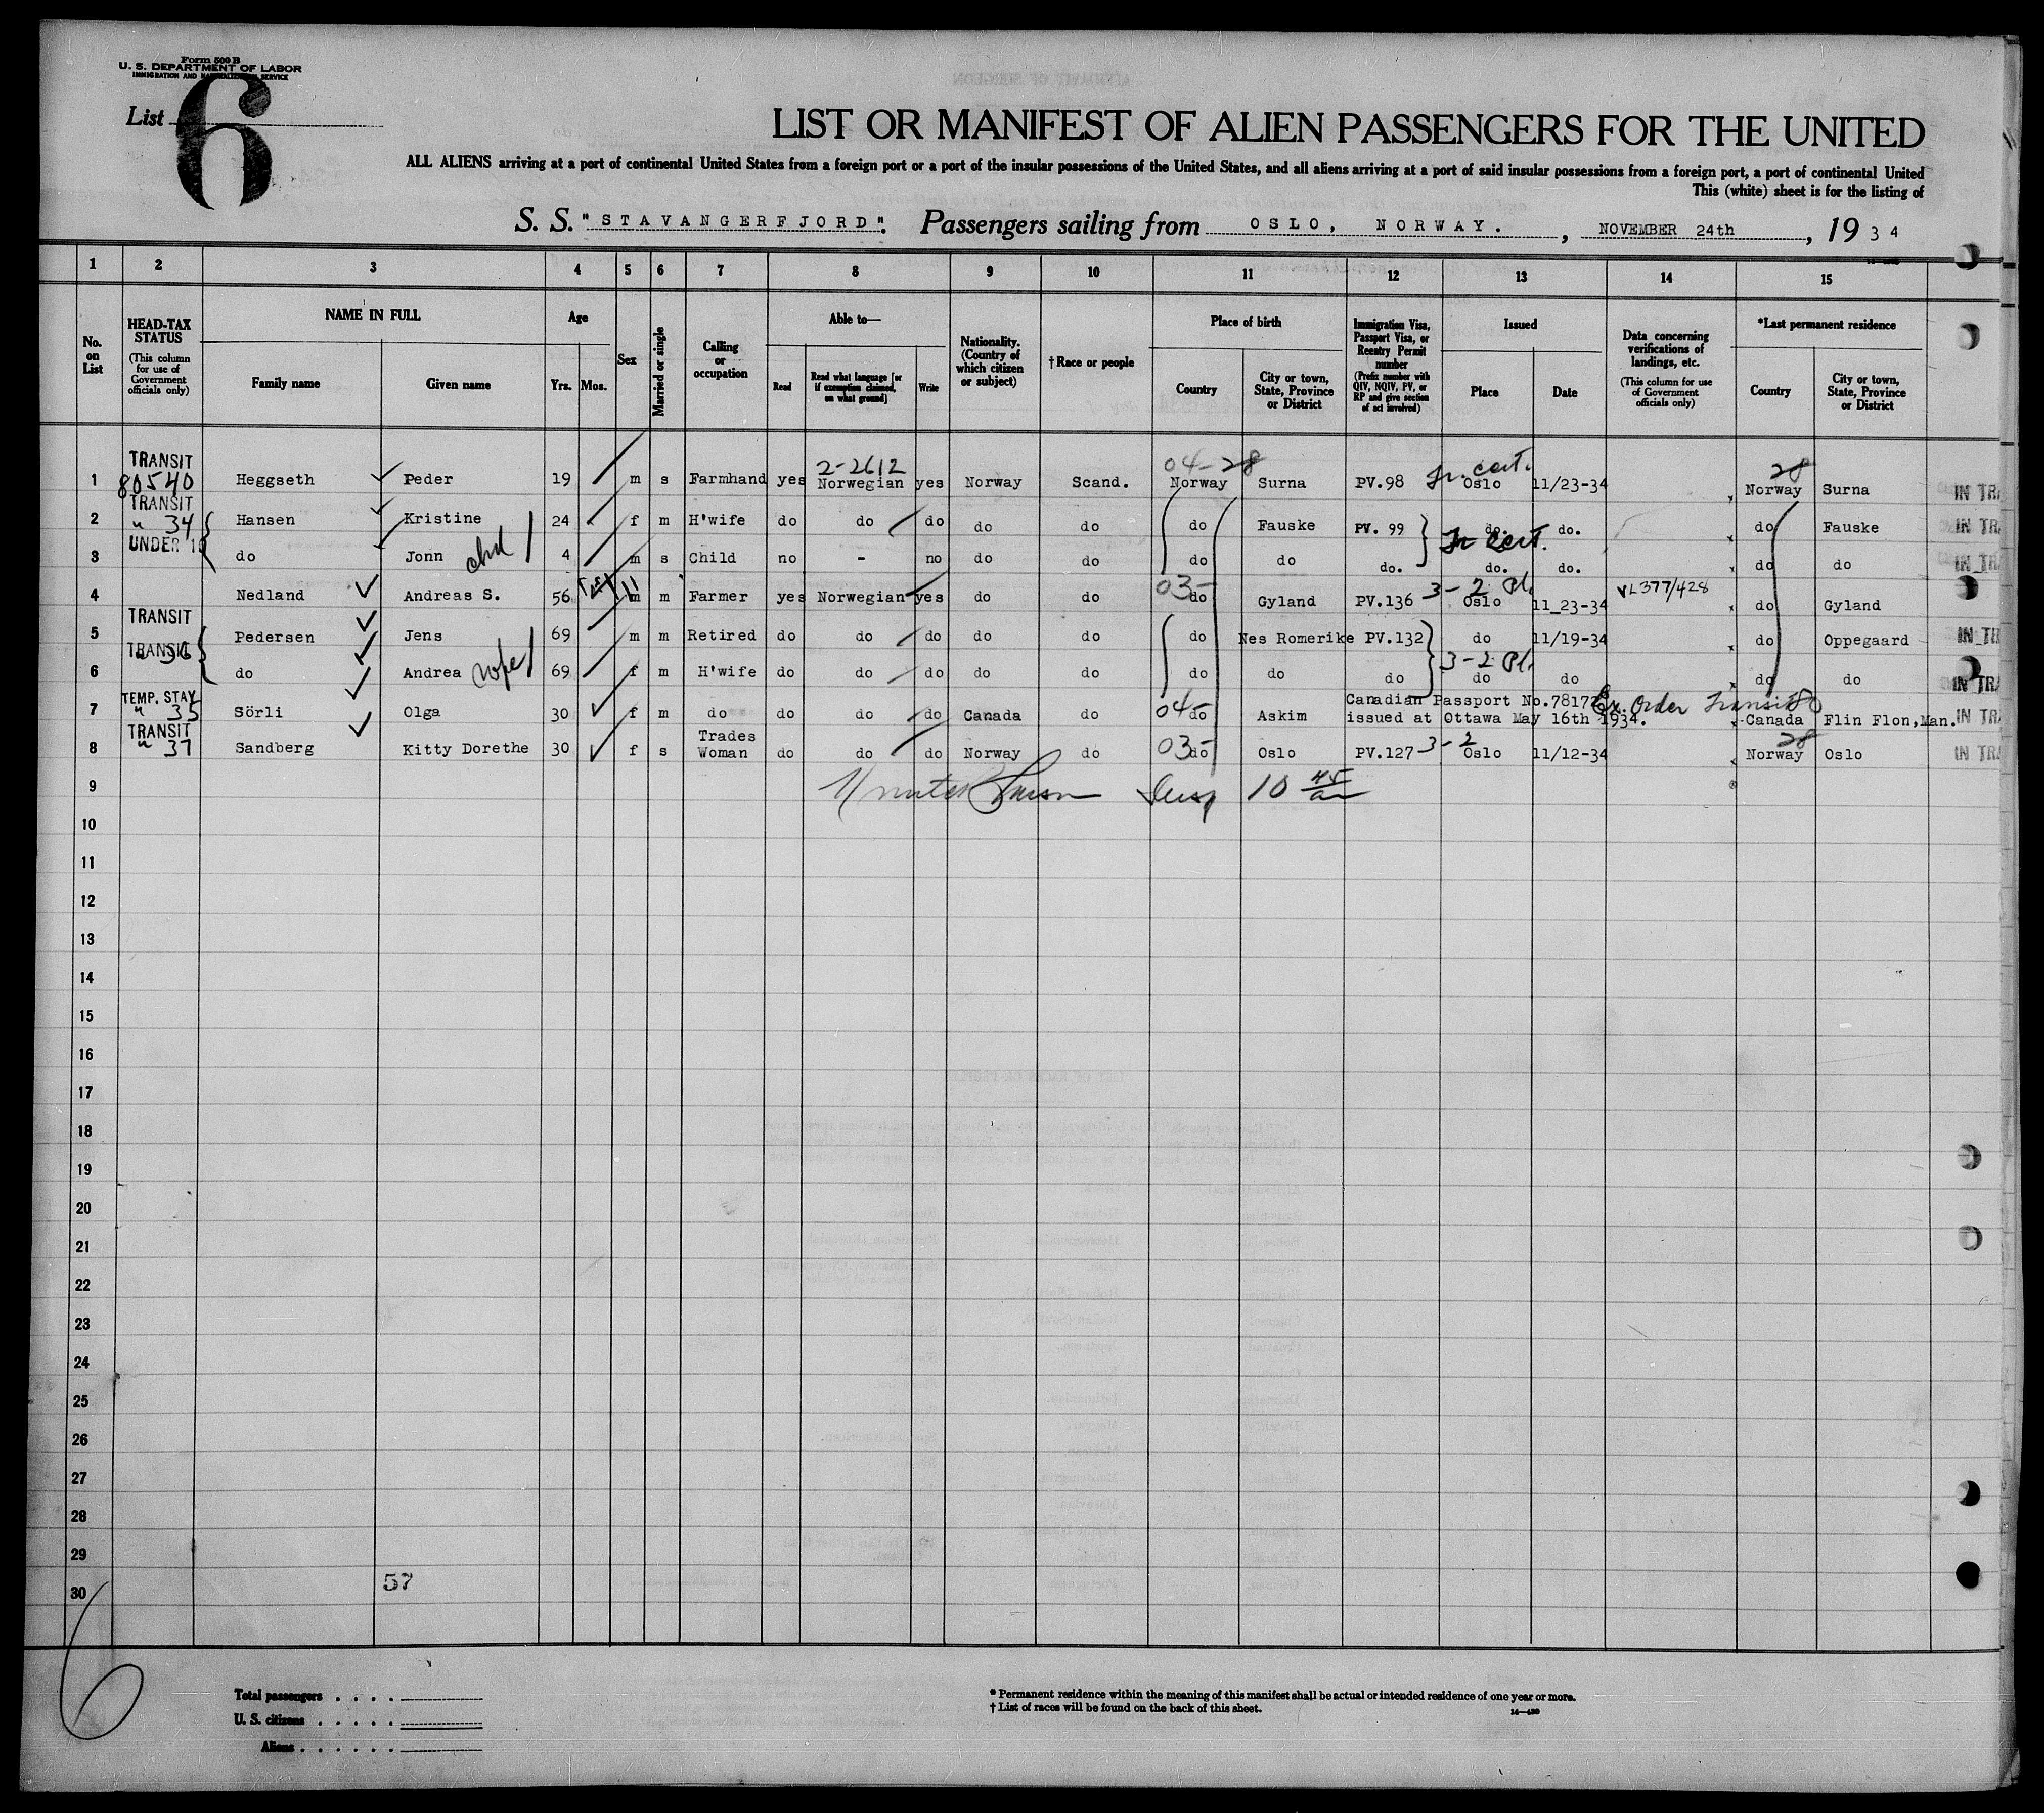 Form 500 B
U. S. DEPARTMENT OF LABOR
IMMIGRATION AND NATURALIZATION SERVICE
List 6
LIST OR MANIFEST OF ALIEN PASSENGERS FOR THE UNITED
ALL ALIENS arriving at a port of continental United States from a foreign port or a port of the insular possessions of the United States, and all aliens arriving at a port of said insular possessions from a foreign port, a port of continental United
This (white) sheet is for the listing of
S. S. "STAVANGERFJORD". Passengers sailing from OSLO, NORWAY. , NOVEMBER 24th , 1934
1 2 3 4 5 6 7 8 9 10 11 12 13 14 15
No. on List
HEAD-TAX STATUS (This column for use of Government officials only)
NAME IN FULL
Family name Given name
Age
Yrs. Mos.
Sex
Married or single
Calling or occupation
Able to—
Read Read what language [or if exemption claimed, on what ground] Write
Nationality. (Country of which citizen or subject)
† Race or people
Place of birth
Country City or town, State, Province or District
Immigration Visa, Passport Visa, or Reentry Permit number (Prefix number with QIV, NQIV, PV, or RP and give section of act involved)
Issued
Place Date
Data concerning verifications of landings, etc. (This column for use of Government officials only)
*Last permanent residence
Country City or town, State, Province or District
TRANSIT 2-2612 04-28 cert. 28
1 80540 Heggseth Peder 19 m s Farmhand yes Norwegian yes Norway Scand. Norway Surna PV.98 Oslo 11/23-34 Norway Surna IN TRA
TRANSIT
2 " 34 Hansen Kristine 24 f m H'wife do do do do do do Fauske PV. 99 do. do. do Fauske IN TRA
UNDER 16 cert.
3 do Jonn child 4 m s Child no - no do do do do do. do. do. do do IN TRA
03- 3-2 Pl. VL377/428
4 Nedland Andreas S. 56 m m Farmer yes Norwegian yes do do do Gyland PV.136 Oslo 11_23-34 do Gyland
TRANSIT
5 Pedersen Jens 69 m m Retired do do do do do do Nes Romerike PV.132 do 11/19-34 do Oppegaard IN TRA
TRANSIT " 36 3-2 Pl.
6 do Andrea wife 69 f m H'wife do do do do do do do do do do do do IN TRA
TEMP. STAY Canadian Passport No.78172 Ex. Order Transit
7 " 35 Sörli Olga 30 f m do do do do Canada do 04- do Askim issued at Ottawa May 16th 1934. Canada Flin Flon,Man. IN TRA
TRANSIT 03- 3-2 28
8 " 37 Sandberg Kitty Dorethe 30 f s Trades Woman do do do Norway do do Oslo PV.127 Oslo 11/12-34 Norway Oslo IN TRA
9 Insp 10 45
10
11
12
13
14
15
16
17
18
19
20
21
22
23
24
25
26
27
28
29
30
57
6
Total passengers . . . .
U. S. citizens . . . . .
Aliens . . . . . .
* Permanent residence within the meaning of this manifest shall be actual or intended residence of one year or more.
† List of races will be found on the back of this sheet.
14—420